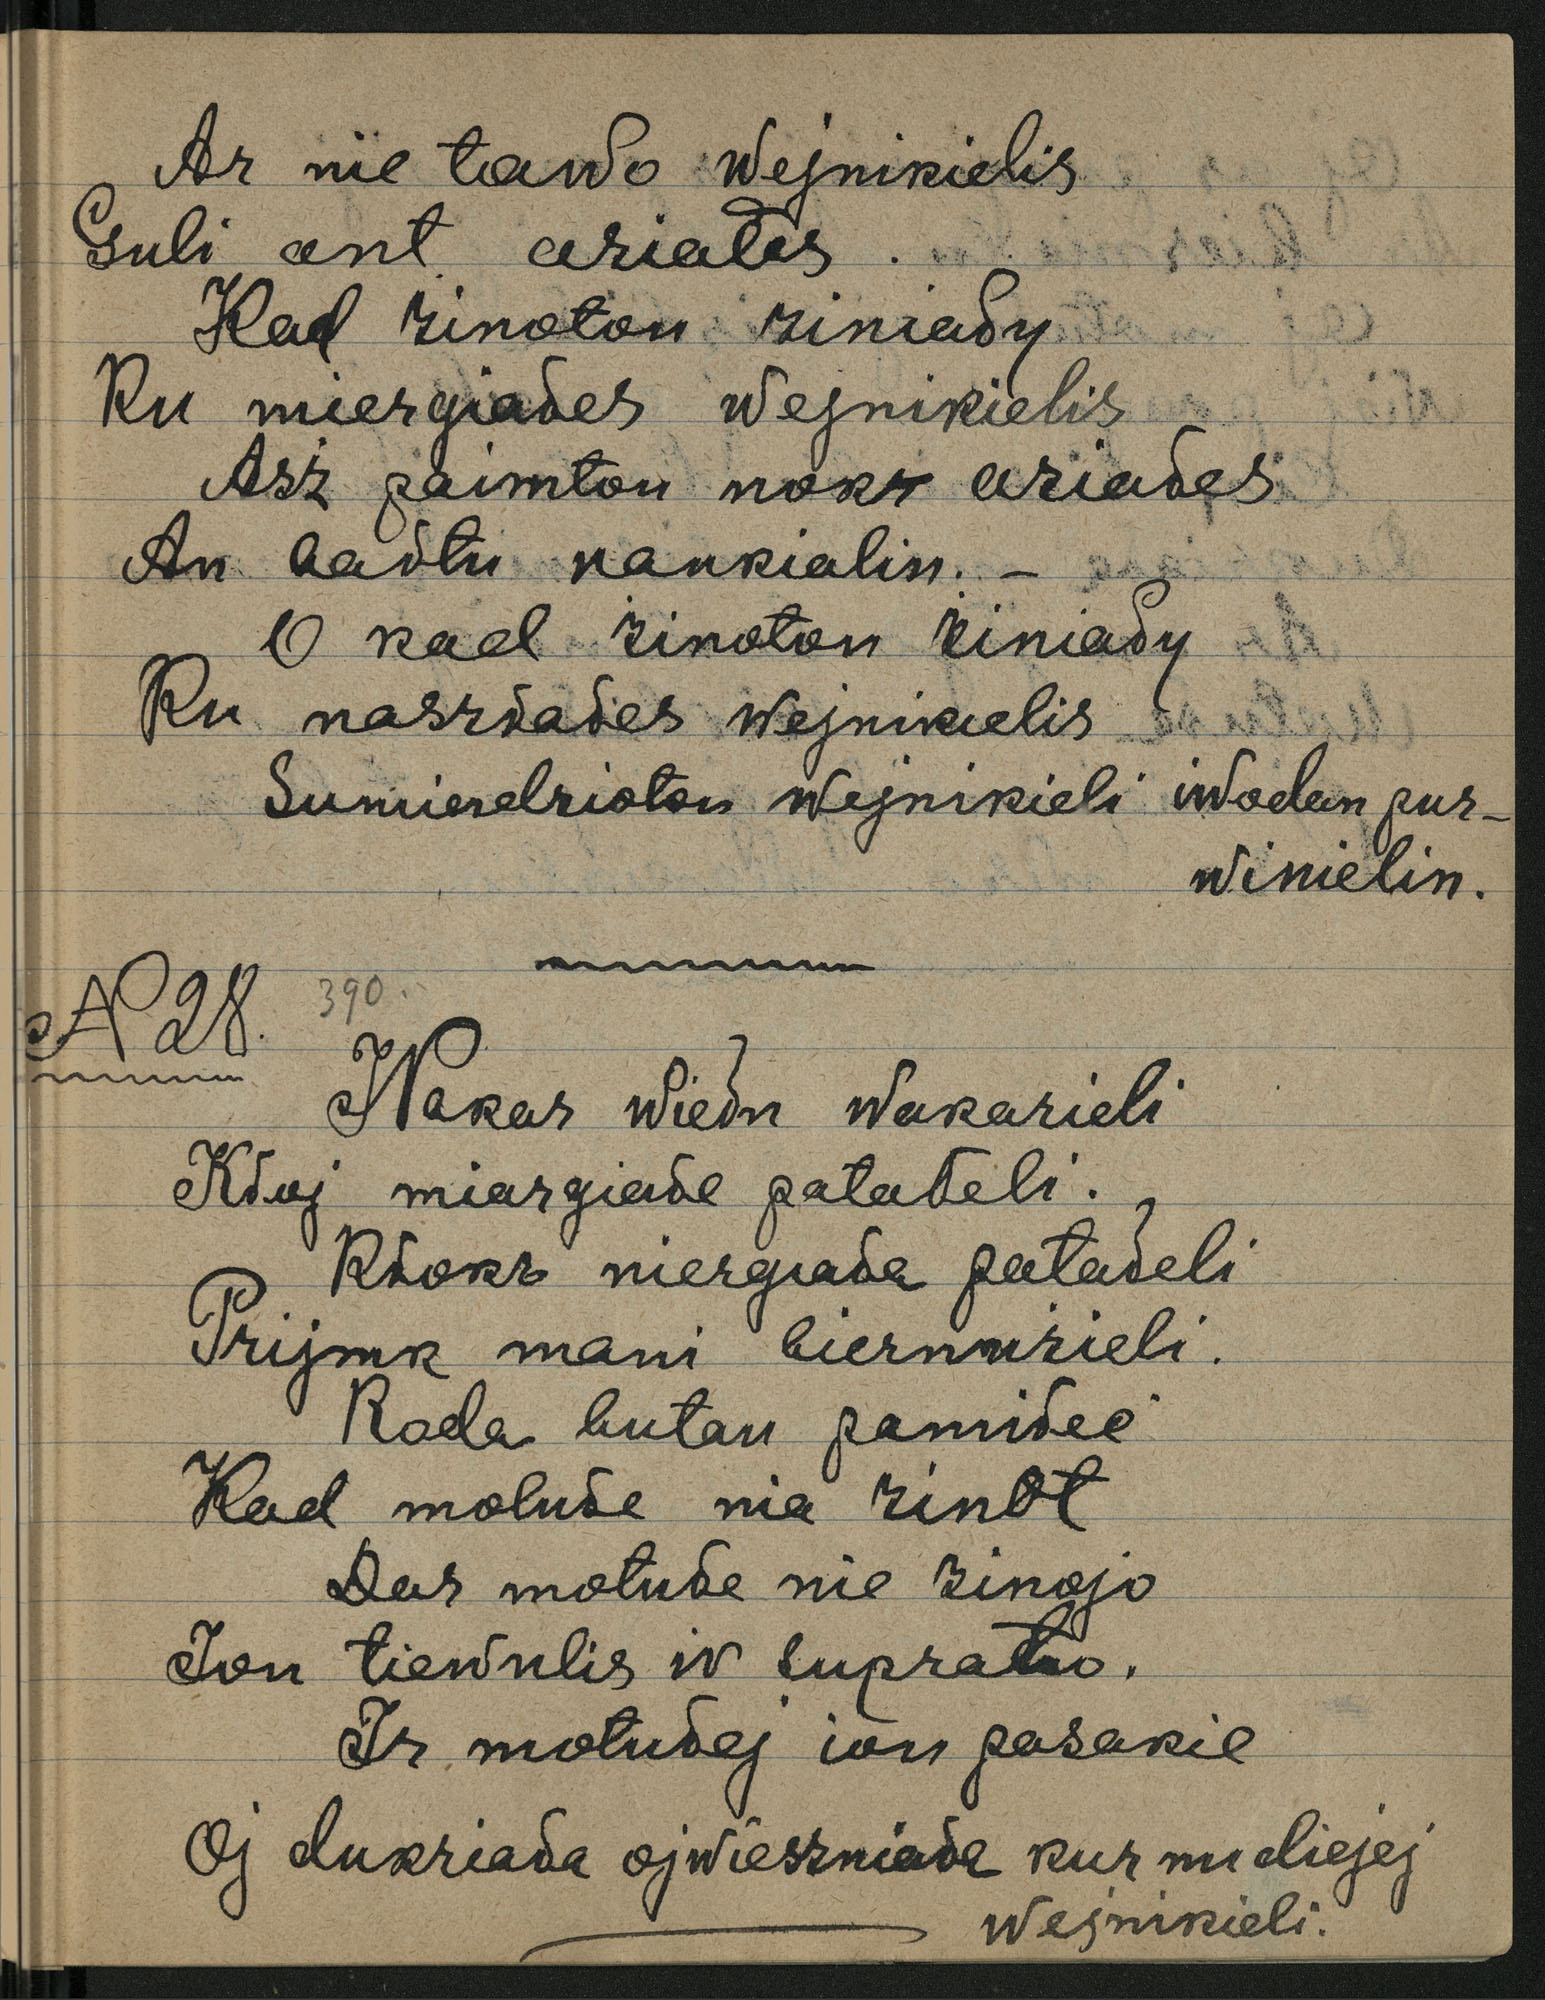 Ar nie tawo wejnikielis
Guli ant aziales.
Kad żinoton żiniały
Ku miergiałes wejnikielis
Asz paimtou nokz aziałes
An bałtu rankialin. –
O kad żinoton żiniały
Ku naszłałes wejnikielis
Sumiendzioton wejnikieli iwodan pur-
winielin.
№ 28. 390.
Wakar wiełu wakarieli
Kłoj miargiałe patałeli.
Kłokz miergiała patałeli
Prijmk mani biernużieli.
Roda butau pamiłeć
Kad motułe nia żinot
Dar motułe nie żinojo
Jou tiewulis iv suprato.
Ir motułej iou pasakie
Oj dukriała oj wieszniała kur nu diejej
wejnikieli.